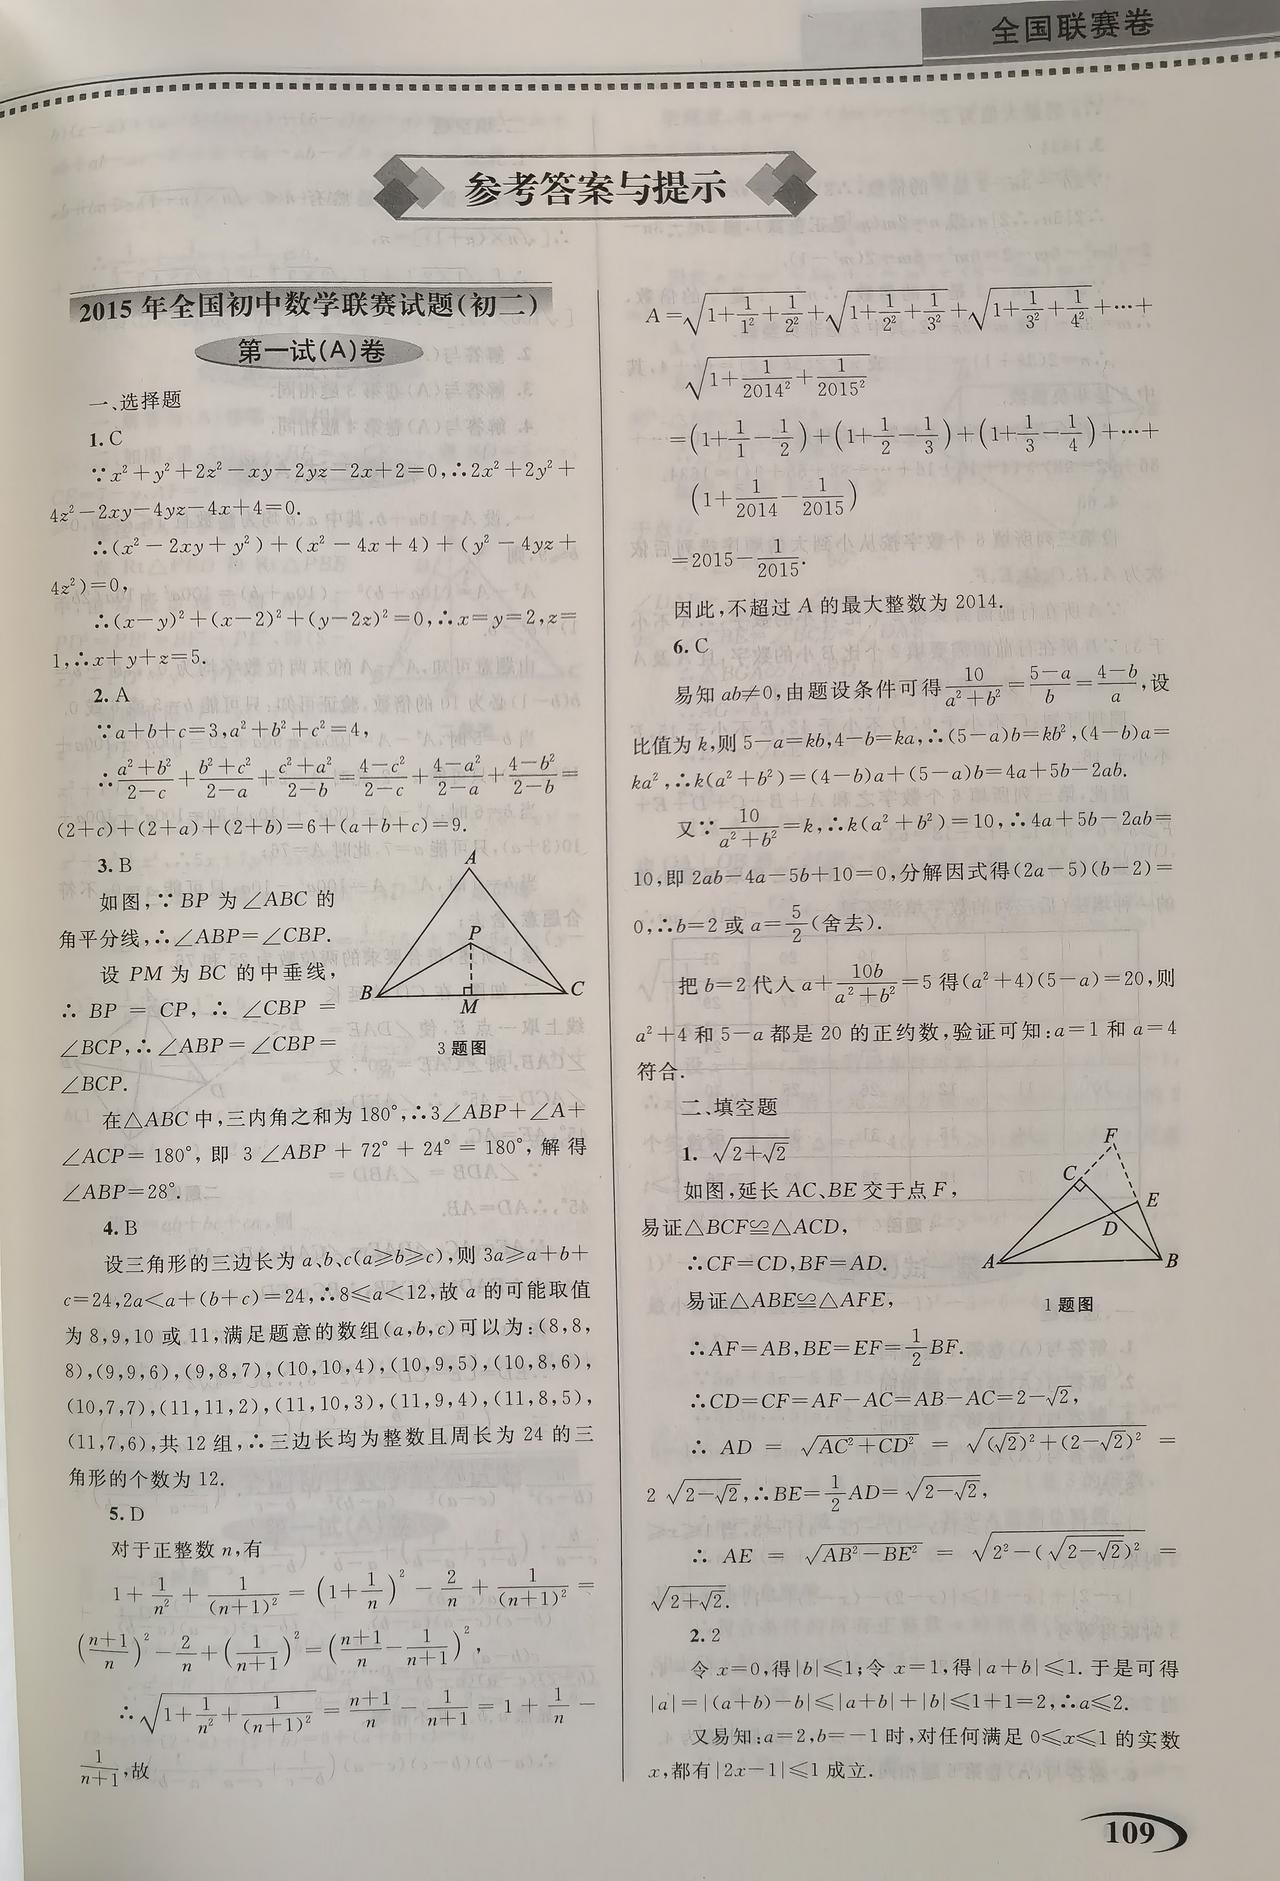 全国联赛卷
参考答案与提示
2015年全国初中数学联赛试题(初二)
第一试(A)卷
一、选择题
1. C
∵x²+y²+2z²-xy-2yz-2x+2=0,∴2x²+2y²+
4z²-2xy-4yz-4x+4=0.
∴(x²-2xy+y²)+(x²-4x+4)+(y²-4yz+
4z²)=0,
∴(x-y)²+(x-2)²+(y-2z)²=0,∴x=y=2,z=
1,∴x+y+z=5.
2. A
∵a+b+c=3,a²+b²+c²=4,
∴(a²+b²)/(2-c)+(b²+c²)/(2-a)+(c²+a²)/(2-b)=(4-c²)/(2-c)+(4-a²)/(2-a)+(4-b²)/(2-b)=
(2+c)+(2+a)+(2+b)=6+(a+b+c)=9.
3. B
如图,∵BP为∠ABC的
角平分线,∴∠ABP=∠CBP.
设PM为BC的中垂线,
∴BP=CP,∴∠CBP=
∠BCP,∴∠ABP=∠CBP=
∠BCP.
A
P
B
M
C
3题图
在△ABC中,三内角之和为180°,∴3∠ABP+∠A+
∠ACP=180°,即3∠ABP+72°+24°=180°,解得
∠ABP=28°.
4. B
设三角形的三边长为a、b、c(a≥b≥c),则3a≥a+b+
c=24,2a<a+(b+c)=24,∴8≤a<12,故a的可能取值
为8,9,10或11,满足题意的数组(a,b,c)可以为:(8,8,
8),(9,9,6),(9,8,7),(10,10,4),(10,9,5),(10,8,6),
(10,7,7),(11,11,2),(11,10,3),(11,9,4),(11,8,5),
(11,7,6),共12组,∴三边长均为整数且周长为24的三
角形的个数为12.
5. D
对于正整数n,有
1+1/n²+1/(n+1)²=(1+1/n)²-2/n+1/(n+1)²=
((n+1)/n)²-2/n+(1/(n+1))²=((n+1)/n-1/(n+1))²,
∴√(1+1/n²+1/(n+1)²)=(n+1)/n-1/(n+1)=1+1/n-
1/(n+1),故
A=√(1+1/1²+1/2²)+√(1+1/2²+1/3²)+√(1+1/3²+1/4²)+···+
√(1+1/2014²+1/2015²)
=(1+1/1-1/2)+(1+1/2-1/3)+(1+1/3-1/4)+···+
(1+1/2014-1/2015)
=2015-1/2015.
因此,不超过A的最大整数为2014.
6. C
易知ab≠0,由题设条件可得10/(a²+b²)=(5-a)/b=(4-b)/a,设
比值为k,则5-a=kb,4-b=ka,∴(5-a)b=kb²,(4-b)a=
ka²,∴k(a²+b²)=(4-b)a+(5-a)b=4a+5b-2ab.
又∵10/(a²+b²)=k,∴k(a²+b²)=10,∴4a+5b-2ab=
10,即2ab-4a-5b+10=0,分解因式得(2a-5)(b-2)=
0,∴b=2或a=5/2(舍去).
把b=2代入a+10b/(a²+b²)=5得(a²+4)(5-a)=20,则
a²+4和5-a都是20的正约数,验证可知:a=1和a=4
符合.
二、填空题
1. √(2+√2)
如图,延长AC、BE交于点F,
易证△BCF≌△ACD,
∴CF=CD,BF=AD.
易证△ABE≌△AFE,
F
C
E
D
A
B
1题图
∴AF=AB,BE=EF=1/2BF.
∴CD=CF=AF-AC=AB-AC=2-√2,
∴AD=√(AC²+CD²)=√((√2)²+(2-√2)²)=
2√(2-√2),∴BE=1/2AD=√(2-√2),
∴AE=√(AB²-BE²)=√(2²-(√(2-√2))²)=
√(2+√2).
2. 2
令x=0,得|b|≤1;令x=1,得|a+b|≤1.于是可得
|a|=|(a+b)-b|≤|a+b|+|b|≤1+1=2,∴a≤2.
又易知:a=2,b=-1时,对任何满足0≤x≤1的实数
x,都有|2x-1|≤1成立.
109